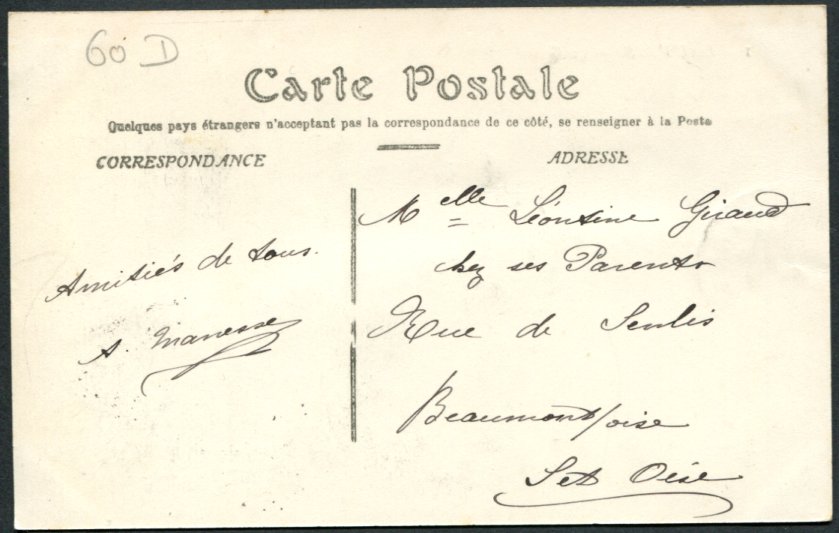 60 D
Carte Postale
Quelques pays étrangers n'acceptant pas la correspondance de ce côté, se renseigner à la Poste
CORRESPONDANCE
ADRESSE
Amitiés de tous.
A. Manesse
Melle Léontine Giraud
chez ses Parents
Rue de Senlis
Beaumont/oise
S et Oise